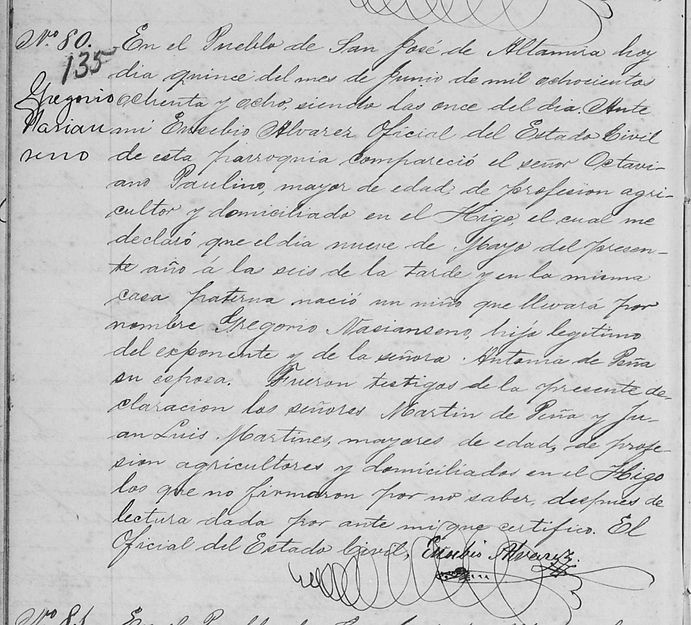 Nº 80.
135
Gregorio
Nasian
seno
En el Pueblo de San José de Altamira hoy
dia quince del mes de Junio de mil ochocientos
ochenta y ocho, siendo las once del dia. Ante
mi Eusebio Alvarez Oficial del Estado Civil
de esta parroquia compareció el señor Octavi-
ano Paulino, mayor de edad, de profesion agri-
cultor y domiciliado en el Higo, el cual me
declaró que el dia nueve de Mayo del presen-
te año á las seis de la tarde y en la misma
casa paterna nació un niño que llevará por
nombre Gregorio Nasianseno, hijo legitimo
del exponente y de la señora Antonia de Peña
su esposa. Fueron testigos de la presente de-
claracion los señores Martin de Peña y Ju-
an Luis Martines, mayores de edad, de profe-
sion agricultores y domiciliados en el Higo
los que no firmaron por no saber, despues de
lectura dada por ante mi que certifico. El
Oficial del Estado Civil, Eusebio Alvarez.
Nº 81
En el Pueblo de San José de